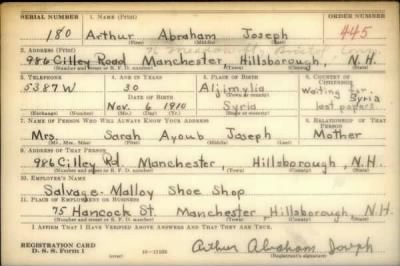 SERIAL NUMBER 1. NAME (Print) ORDER NUMBER
180 Arthur Abraham Joseph 445
(First) (Middle) (Last)
2. ADDRESS (Print)
986 Cilley Road Manchester, Hillsborough, N.H.
(Number and street or R. F. D. number) (Town) (County) (State)
3. TELEPHONE 4. AGE IN YEARS 5. PLACE OF BIRTH 6. COUNTRY OF CITIZENSHIP
5387W 30 Aljimylia Waiting for
DATE OF BIRTH Syria
Nov. 6 1910 Syria lost papers.
(Exchange) (Number) (Mo.) (Day) (Yr.) (State or country)
7. NAME OF PERSON WHO WILL ALWAYS KNOW YOUR ADDRESS 8. RELATIONSHIP OF THAT PERSON
Mrs. Sarah Ayoub Joseph Mother
(Mr., Mrs., Miss) (First) (Middle) (Last)
9. ADDRESS OF THAT PERSON
986 Cilley Rd. Manchester, Hillsborough, N.H.
(Number and street or R. F. D. number) (Town) (County) (State)
10. EMPLOYER'S NAME
Salvage-Malloy Shoe Shop
11. PLACE OF EMPLOYMENT OR BUSINESS
75 Hancock St. Manchester, Hillsborough, N.H.
(Number and street or R. F. D. number) (Town) (County) (State)
I AFFIRM THAT I HAVE VERIFIED ABOVE ANSWERS AND THAT THEY ARE TRUE.
REGISTRATION CARD
D. S. S. Form 1 (over) Arthur Abraham Joseph
(Registrant's signature)